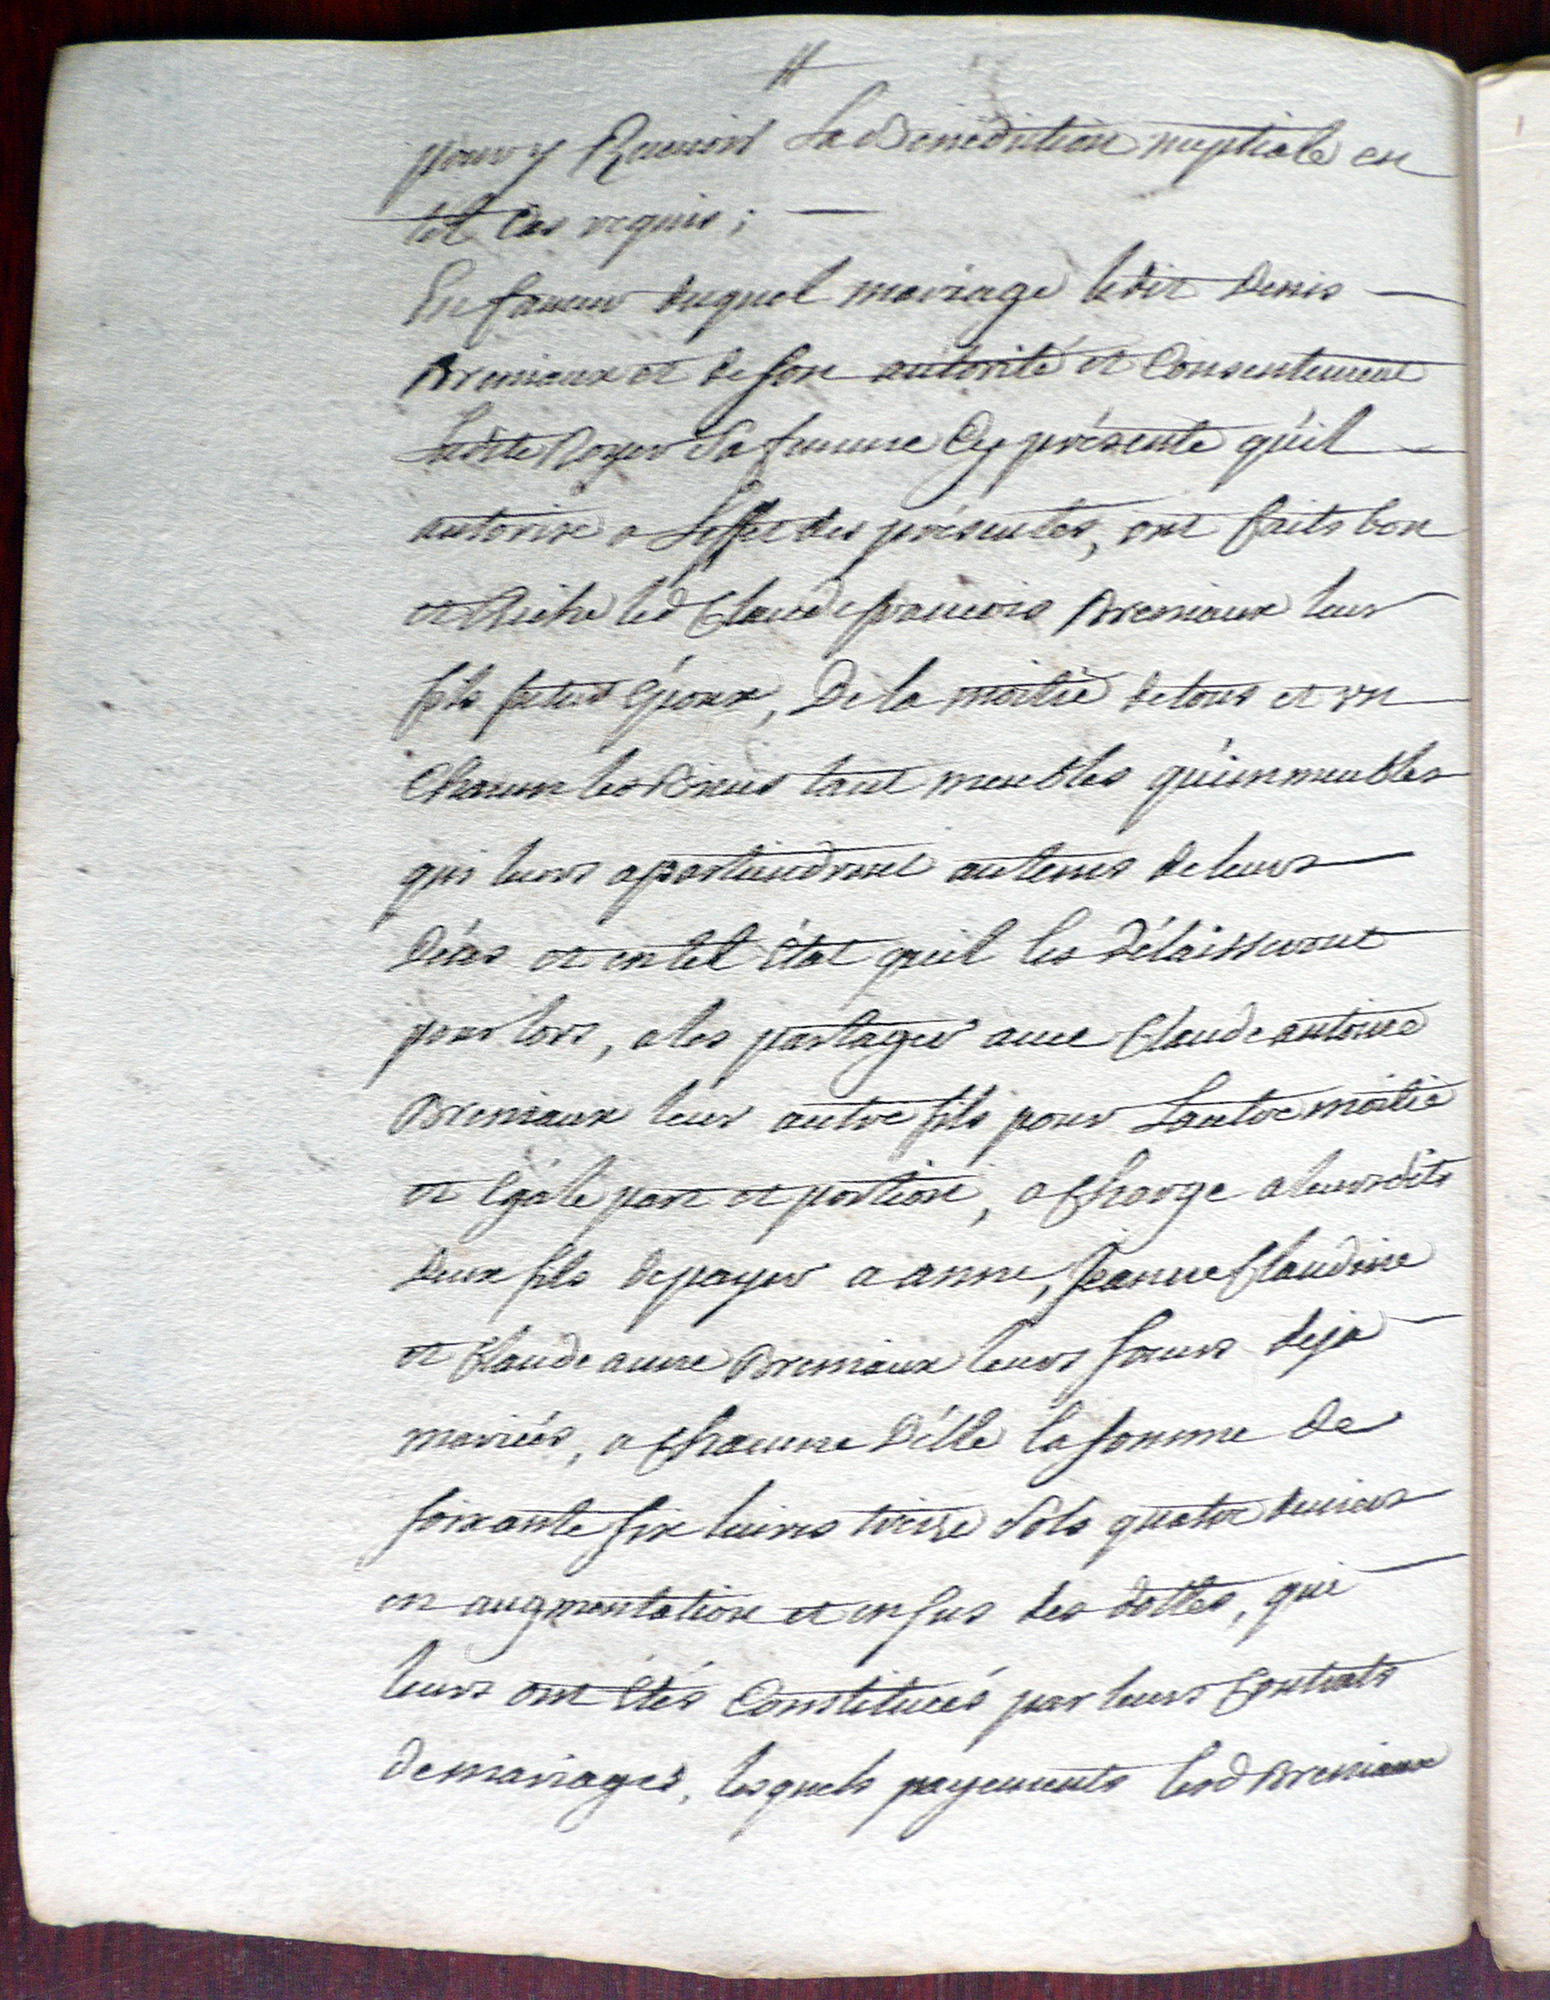 pour y Recevoir La Benediction nuptiale en
tel Cas requis ;
En faveur duquel mariage ledit Denis
Breniaux et de son autorité et Consentement
Ladite Royer Sa femme Cy présente qu'il
autorise a L'effet des présentes, ont faits bon
et Riche led Claude francois Breniaux leur
fils futur Epoux, De la moitié de tous et un
Chacun les Biens tant meubles qu'immeubles
qui leurs apartiendront au tems de leurs
Décès et en tel état qu'il les Délaisseront
pour lors, a les partager avec Claude antoine
Breniaux leur autre fils pour Lautre moitié
et Egale part et portion, a Charge a leursdits
deux fils de payer a anne, Jeanne Claudine
et Claude anne Breniaux leurs soeurs deja
mariées, a Chacune D'élle la somme de
soixante six livres treize Sols quatre deniers
en augmentation et en sus des dottes, qui
leurs ont étés Constituées par leurs Contrats
de mariages, lesquels payements lesd Breniaux